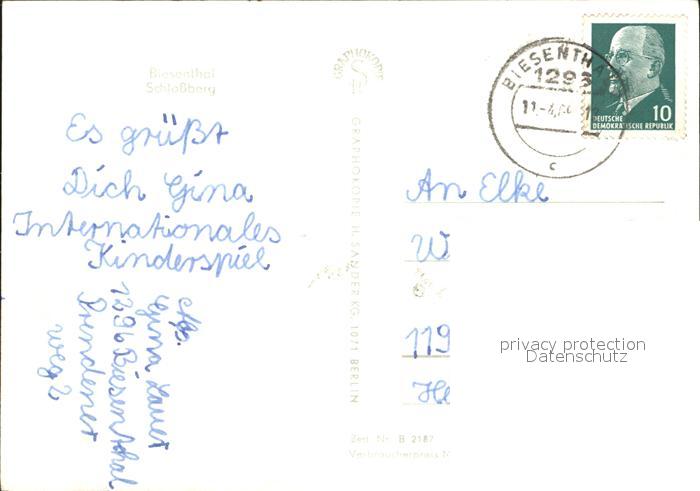 Biesenthal
Schloßberg
Es grüßt
Dich Gina
Internationales
Kinderspiel
Abs.
Gina Lauet
1296 Biesenthal
Prendener
weg 2
GRAPHOKOPIE
GRAPHOKOPIE H. SANDER KG. 1071 BERLIN
BIESENTHA
129
11.-4.
c
DEUTSCHE
DEMOKRATISCHE REPUBLIK
10
An Elke
W
119
He
privacy protection
Datenschutz
Best. Nr. B 2187
Verbraucherpreis M